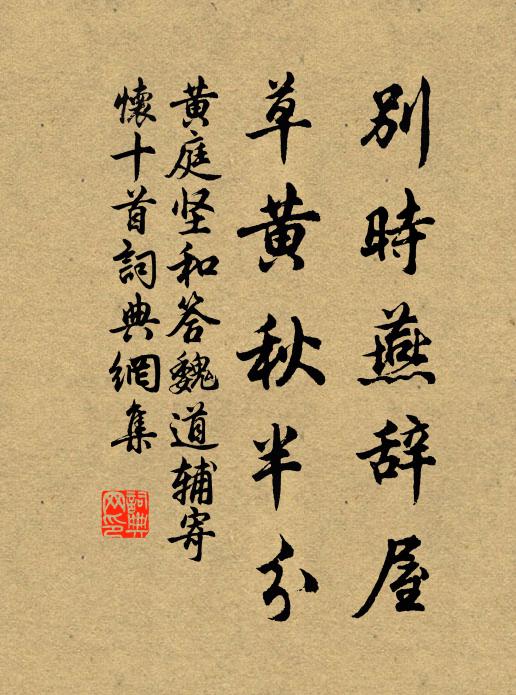 別時燕辞屋
草黄秋半分
黄庭坚和答魏道辅寄
懷十首詞典網集
詞典網印